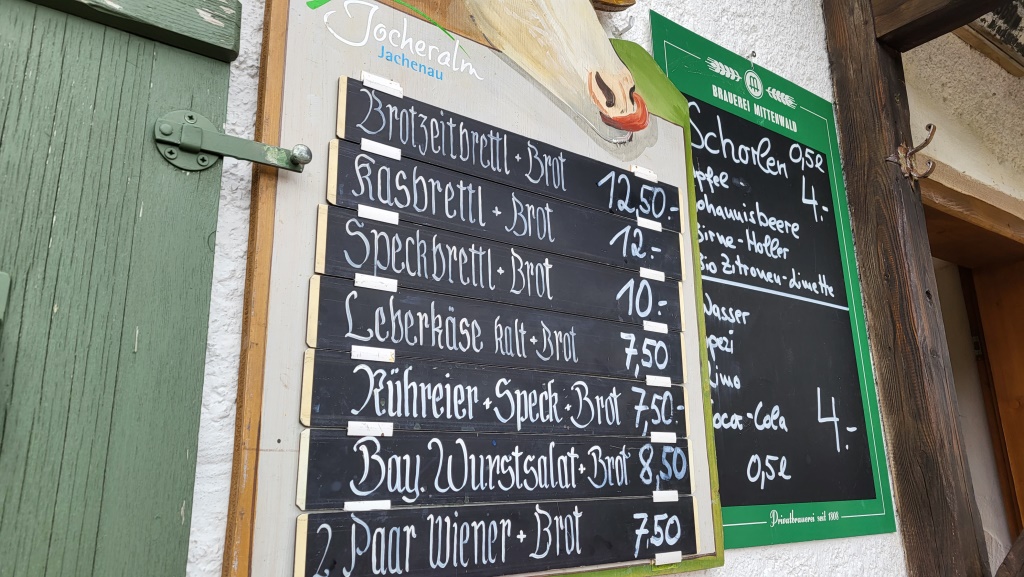 Jocheralm
Jachenau
Brotzeitbrettl + Brot 12,50.-
Kasbrettl + Brot 12.-
Speckbrettl + Brot 10.-
Leberkäse kalt + Brot 7,50
Rühreier + Speck + Brot 7,50.-
Bay. Wurstsalat + Brot 8,50
2 Paar Wiener + Brot 7,50
BRAUEREI MITTENWALD
Schorlen 0,5l
pfel 4.-
ohannisbeere
irne-Holler
Bio Zitronen-dinette
Wasser
pezi
imo
oca-Cola 4.-
0,5l
Privatbrauerei seit 1808